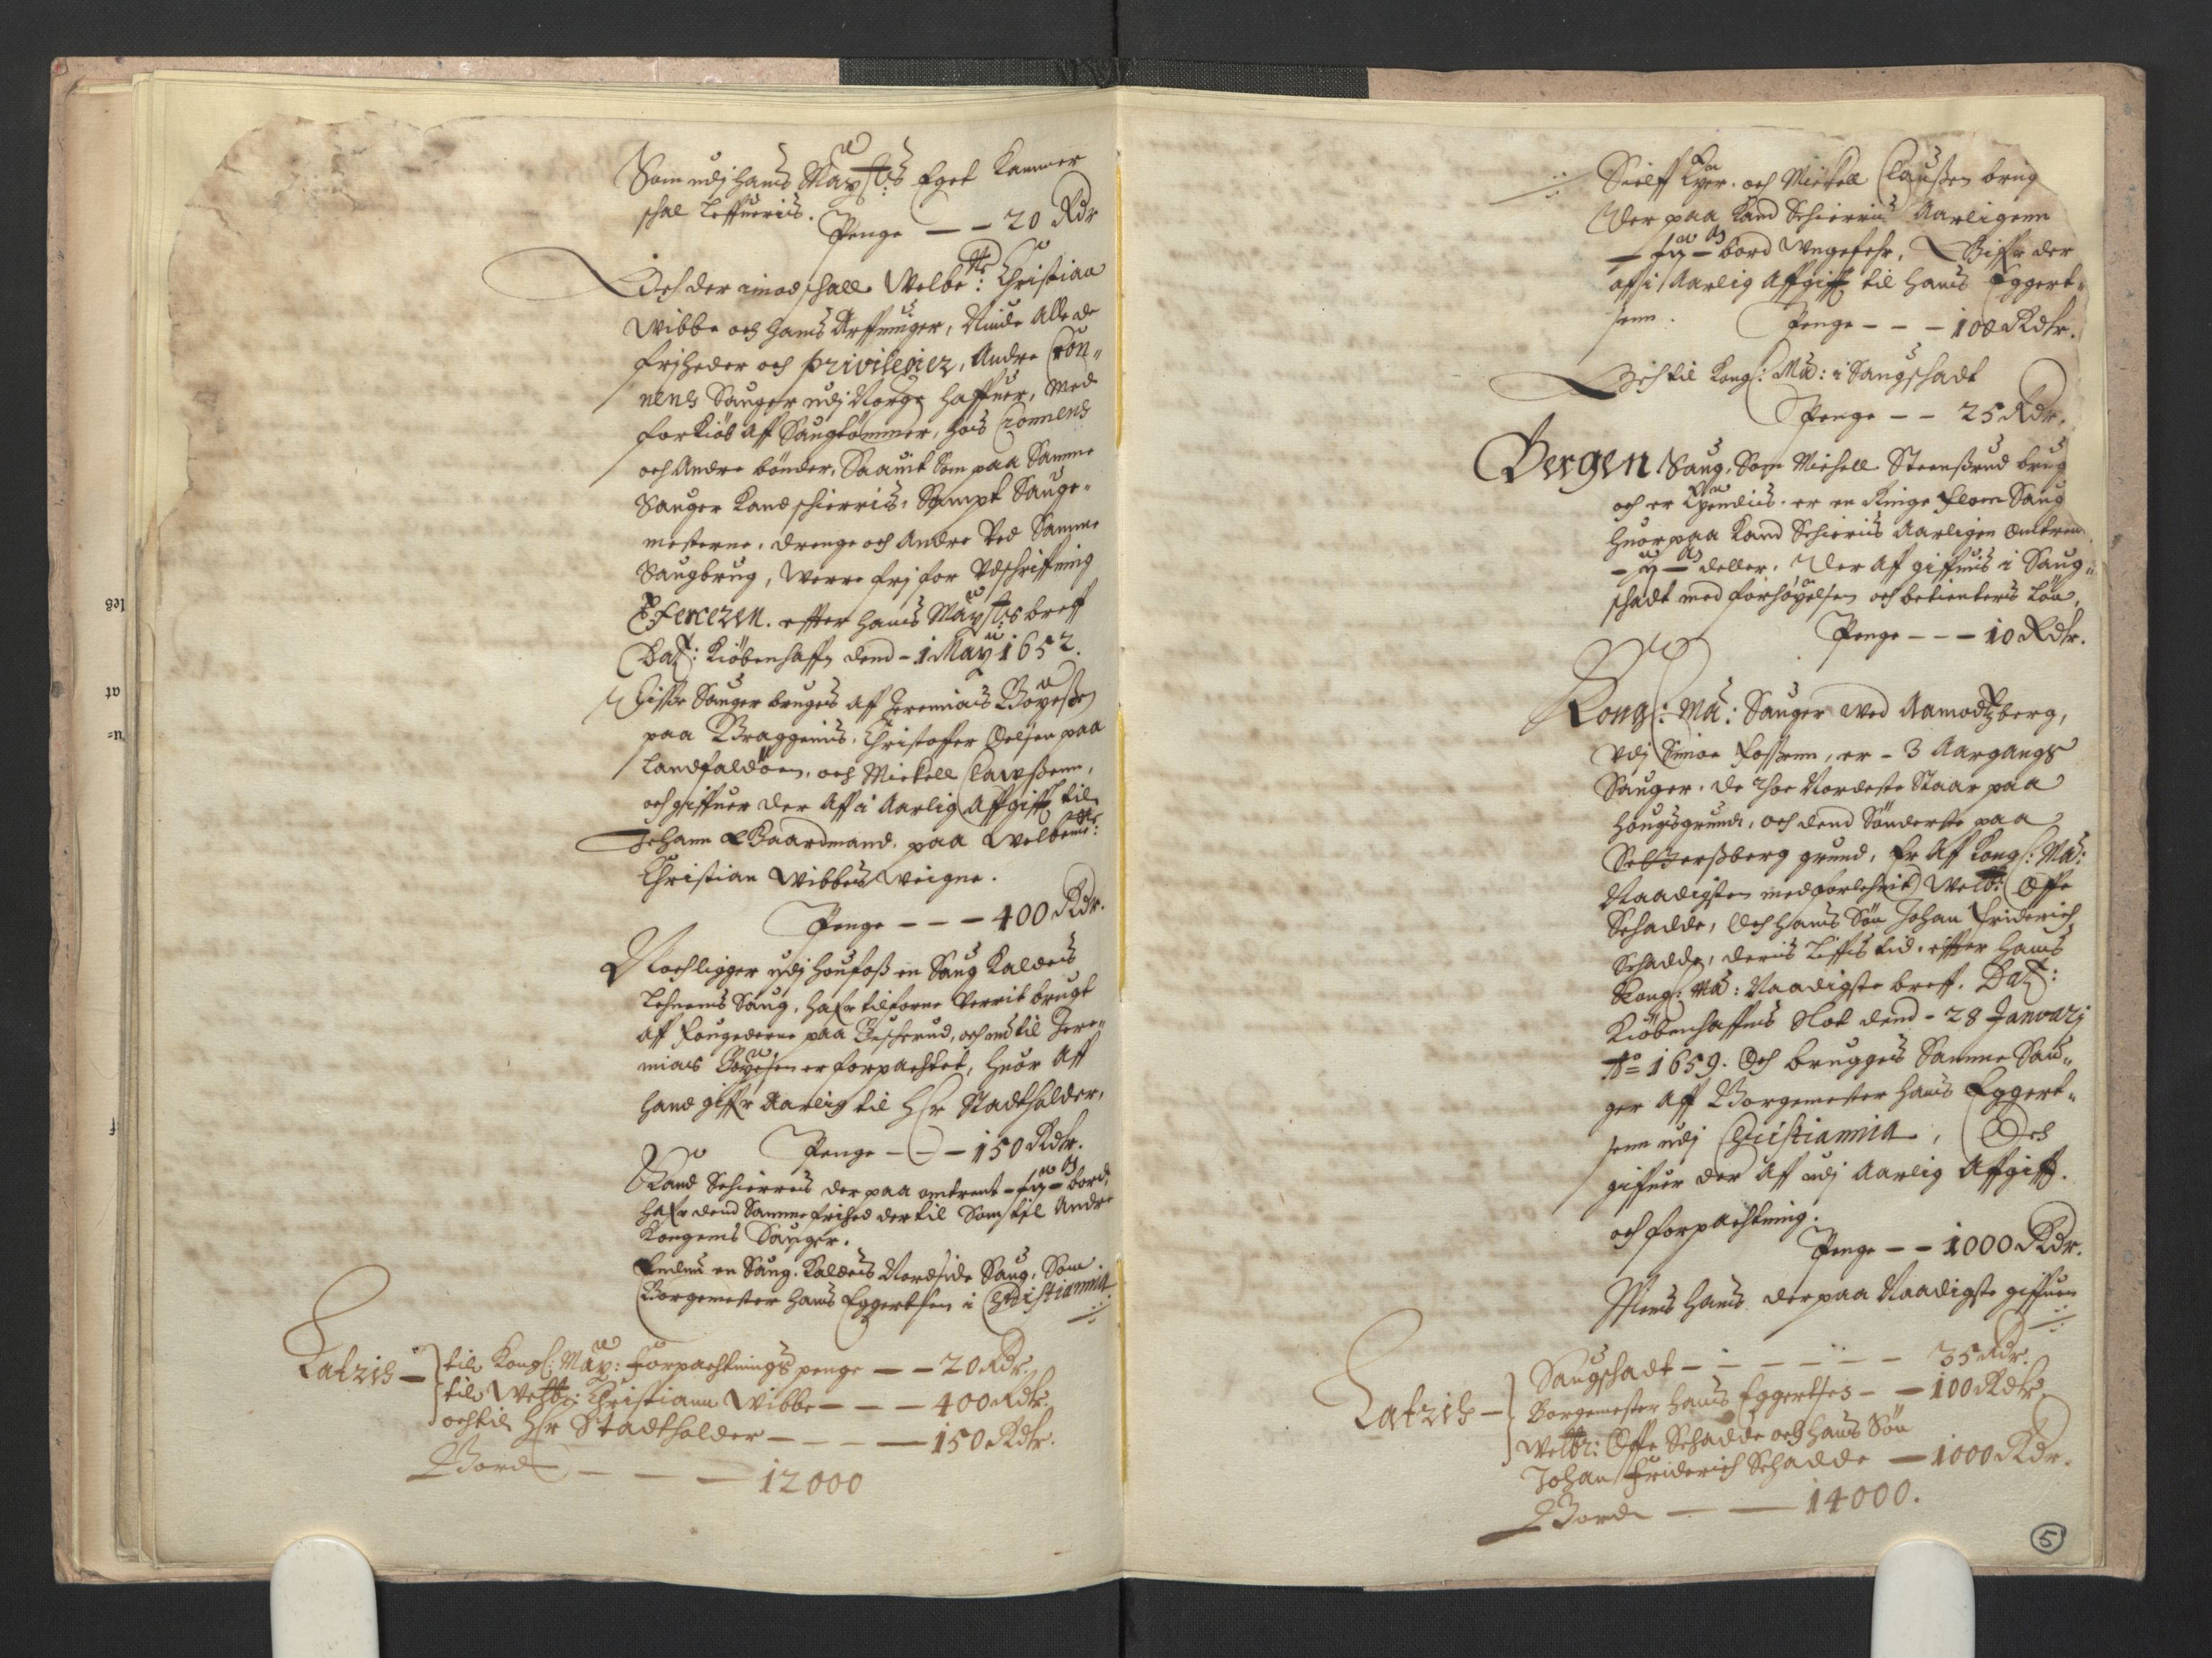 Som udj hans Maytts Eget Kammer
schal Leffueris.
Penge — — 20 Rdr
Och der imod schall Welbe: Christian
Wibbe och hans Arffuinger, Niude Alle de
friheder och privilegier, Andre Cron„
nens Sauger udj Norge haffuer, med
forkiøb aff Saugtømmer, hos Cronens
och Andre bønder, Saauit Som paa Samme
Sauger Kand schierris, Sampt Sauge„
mesterne, drenge och Andre Ved Samme
Saugbrug, Werre frj for Vdschriffning
effter hans Maytts breff
Dat: Kiøbenhaffn dend - 1 May 1652.
Disse Sauger bruges aff Jeremias Bøyesen
paa Braggenis, Christoffer Oelsen paa
Landfaldöen, och Mickell Clawssenn,
och giffuer der Aff i Aarlig Affgifft til
Johann Gaardmand, paa Welbemte:
Christian Wibbes weigne.
Penge — — — 400 Rdr.
Noch ligger udj Honfoss en Saug Kaldes
Lehnens Saug, hafr tilforne Verrit brugt
aff fougederne paa Buscherud, och nu til Jere„
mias Bøyesen er forpachtet, huor Aff
hand giffr Aarlig til Hr Stadtholder,
Penge — — — 150 Rdr.
Kand Schierres der paa omtrent bord,
hafr dend Samme frihed der til Som til Andre
Kongens Sauger.
Endnu en Saug, Kaldes Nordside Saug, Som
Borgemester Hans Eggertsen i Christiannia
Latzis —
til Kongl: May: forpachtnings penge — — 20 Rdr.
til Welbr: Christiann Wibbe — — — 400 Rdr.
och til Hr Stadtholder — — — — 150 Rdr.
Bord — — — — 12000
Sielff Eyer. och Mickell Claussen brug
Der paa Kand Schierris Aarligenn
bord Ungefehr, Giffr der
aff i Aarlig Affgifft til Hans Eggert„
senn. Penge — — — 100 Rdr.
Och til Kongl: Ma: i Saugschadt
Penge — — 25 Rdr.
Bergen Saug, Som Michell Steenssrud brug
och er Eyendis, er en Ringe floem Saug
huor paa Kand Schieris Aarligen omtrent
deller. Der Aff giffuis i Saug„
schadt med forhøyelsen och betienteris løn,
Penge — — — 10 Rdr.
Kongl: Ma: Sauger wed Aamodtzberg,
Vdj Simoe fossenn, er - 3 Aargangs
Sauger. de thoe Nordeste Staar paa
hougsgrund, och dend Sønderste paa
grund, Er Aff Kongl: Ma:
Naadigsten med forlehnit Welb: Offe
Schadde, Och hans Søn Johan Friderich
Schadde, deris Liffs tid, effter hans
Kong: Ma: Naadigste breff. Dat:
Kiøbenhaffns Slot dend - 28 Januarj
Ao 1659. Och brugges Samme Sau„
ger Aff Borgemester Hans Eggert„
senn udj Christiannia, Och
gifuer der Af udj Aarlig Affgifft.
och forpachtning.
Penge — — 1000 Rdr.
Mens Hans der paa Naadigste giffuen
Latzis —
Saugschadt — — — — — — 35 Rdr.
Borgemester Hans Eggertses — — 100 Rdr.
Welbr: Offe Schadde och Hans Søn
Johan Friderich Schadde — 1000 Rdr.
Bord — — — 14000.
5